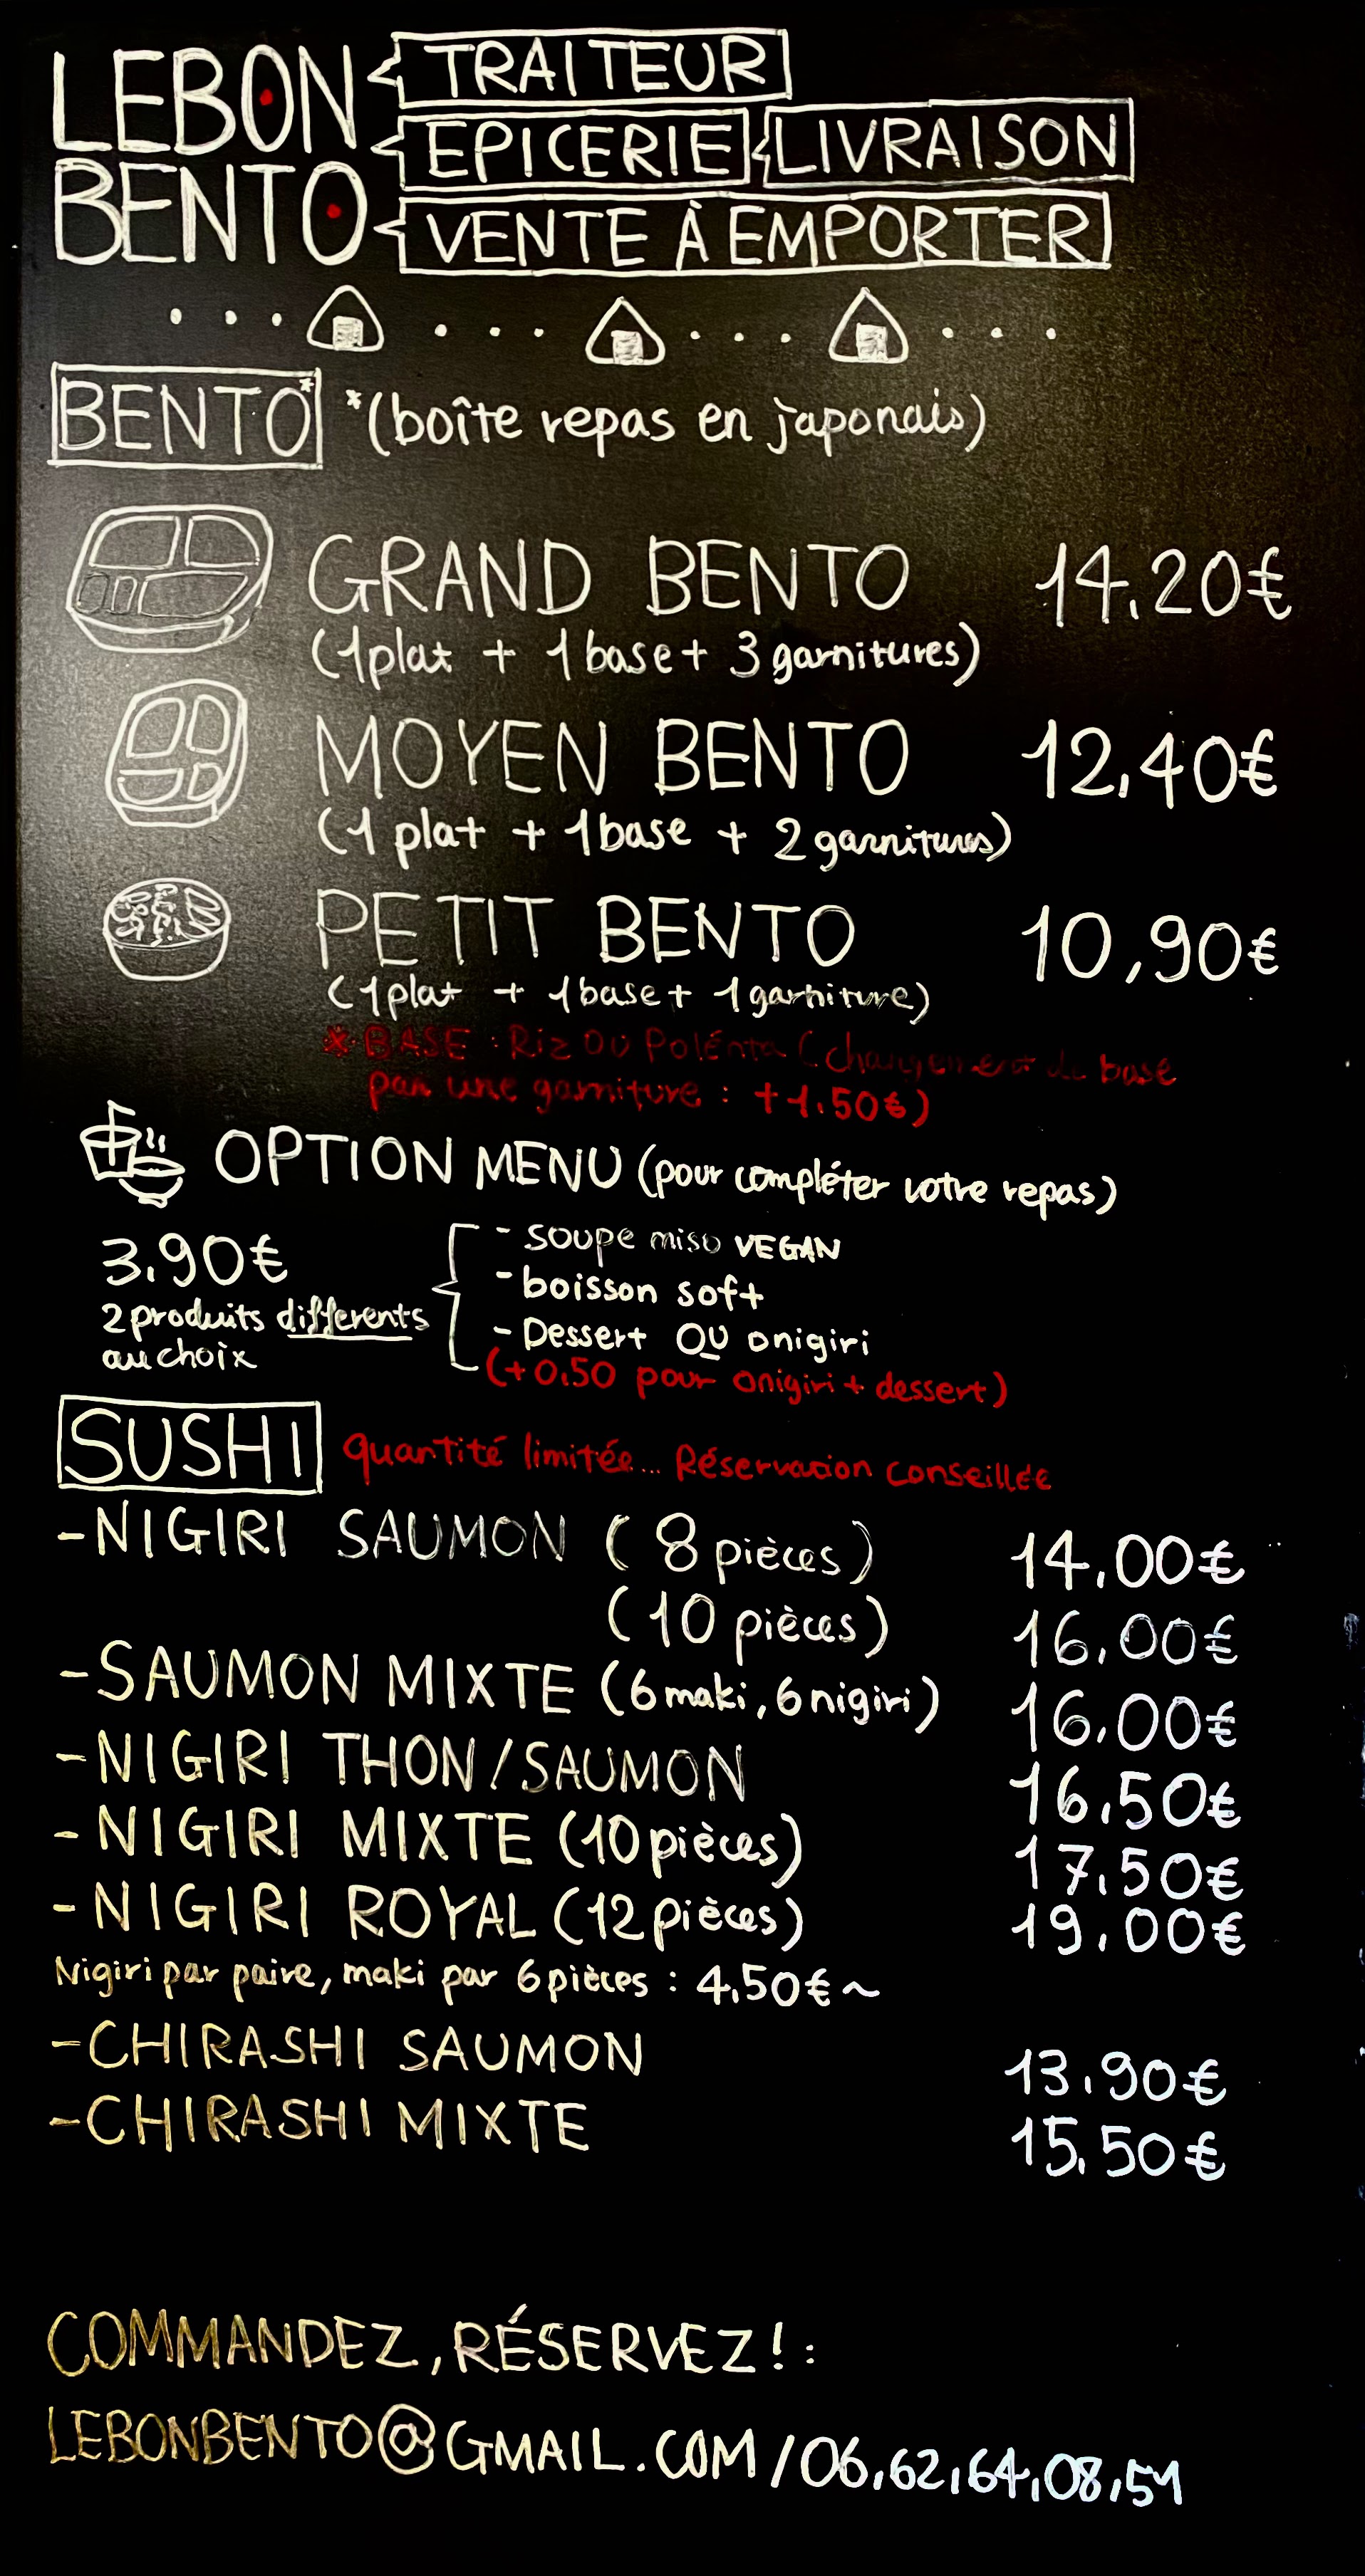 LEBON
BENTO
TRAITEUR
EPICERIE
LIVRAISON
VENTE À EMPORTER
BENTO* *(boîte repas en japonais)
GRAND BENTO 14,20€
(1plat + 1base + 3 garnitures)
MOYEN BENTO 12,40€
(1 plat + 1base + 2 garnitures)
PETIT BENTO 10,90€
(1plat + 1base + 1 garniture)
* BASE : Riz OU Polénta (changement de base
par une garniture : +1.50€)
OPTION MENU (pour compléter votre repas)
3.90€
2 produits differents
au choix
- soupe miso VEGAN
- boisson soft
- Dessert OU onigiri
(+0.50 pour onigiri + dessert)
SUSHI quantité limitée... Réservation conseillée
-NIGIRI SAUMON (8 pièces) 14,00€
(10 pièces) 16,00€
-SAUMON MIXTE (6 maki, 6 nigiri) 16,00€
-NIGIRI THON/SAUMON 16,50€
-NIGIRI MIXTE (10 pièces) 17,50€
-NIGIRI ROYAL (12 pièces) 19,00€
Nigiri par paire, maki par 6 pièces : 4,50€~
-CHIRASHI SAUMON 13,90€
-CHIRASHI MIXTE 15,50€
COMMANDEZ, RÉSERVEZ! :
LEBONBENTO@GMAIL.COM/06,62,64,08,51